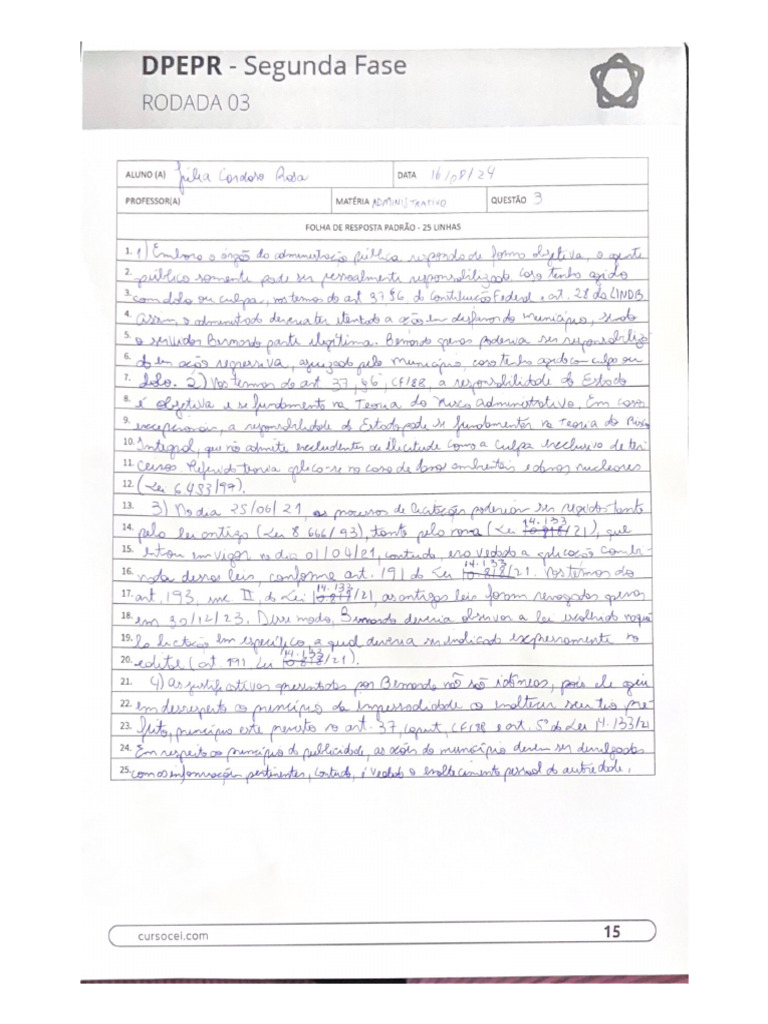 DPEPR - Segunda Fase
RODADA 03
ALUNO (A) Júlia Cardoso Rosa DATA 16/08/24
PROFESSOR(A) MATÉRIA ADMINISTRATIVO QUESTÃO 3
FOLHA DE RESPOSTA PADRÃO - 25 LINHAS
1. 1) Embora o órgão da administração pública responda de forma objetiva, o agente
2. público somente pode ser pessoalmente responsabilizado caso tenha agido
3. com dolo ou culpa, nos termos do art 37 §6, da Constituição Federal e art. 28 da LINDB
4. Assim, o administrado deveria ter intentado a ação em desfavor do município, sendo
5. o servidor Bernardo parte ilegítima. Bernardo apenas poderia ser responsabiliza
6. do em ação regressiva, ajuizada pelo município, caso tenha agido com culpa ou
7. dolo. 2) Nos termos do art. 37, §6, CF/88, a responsabilidade do Estado
8. é objetiva e se fundamenta na Teoria do Risco Administrativo. Em casos
9. excepcionais, a responsabilidade do Estado pode se fundamentar na Teoria do Risco
10. Integral, que não admite excludentes de ilicitude como a culpa exclusiva de ter
11. ceiros. Referida teoria aplica-se no caso de danos ambientais e danos nucleares
12. (Lei 6.453/77).
13. 3) No dia 25/06/21, os processos de licitação poderiam ser regidos tanto
14. pela lei antiga (Lei 8.666/93), tanto pela nova (Lei 14.133/21), que
15. entrou em vigor no dia 01/04/21, contudo, era vedada a aplicação combi-
16. nada dessas leis, conforme art. 191 da Lei 14.133/21. Nos termos do
17. art. 193, inc II, da Lei 14.133/21, as antigas leis foram revogadas apenas
18. em 30/12/23. Desse modo, Bernardo deveria observar a lei escolhida naque
19. la licitação em específico, a qual deveria ser indicada expressamente no
20. edital (art 191 Lei 14.133/21).
21. 4) As justificativas apresentadas por Bernardo não são idôneas, pois ele agiu
22. em desrespeito ao princípio da impessoalidade ao enaltecer seu tio pre
23. feito, princípio este previsto no art. 37, caput, CF/88 e art. 5º da Lei 14.133/21
24. Em respeito ao princípio da publicidade, as ações do município devem ser divulgadas
25. com as informações pertinentes, contudo, é vedado o enaltecimento pessoal da autoridade.
cursocei.com
15